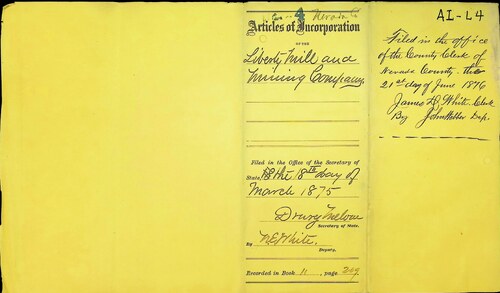 4 Nevada
Articles of Incorporation
OF THE
Liberty Mill and
Mining Company
Filed in the Office of the Secretary of
State, the 18th day of
March 1875
Drury Melone
Secretary of State.
By W.E. White.
Deputy.
Recorded in Book 11, page
AI-L4
Filed in the office
of the County Clerk of
Nevada County this
21st day of June 1876
James D. White Clerk
By John Dep.